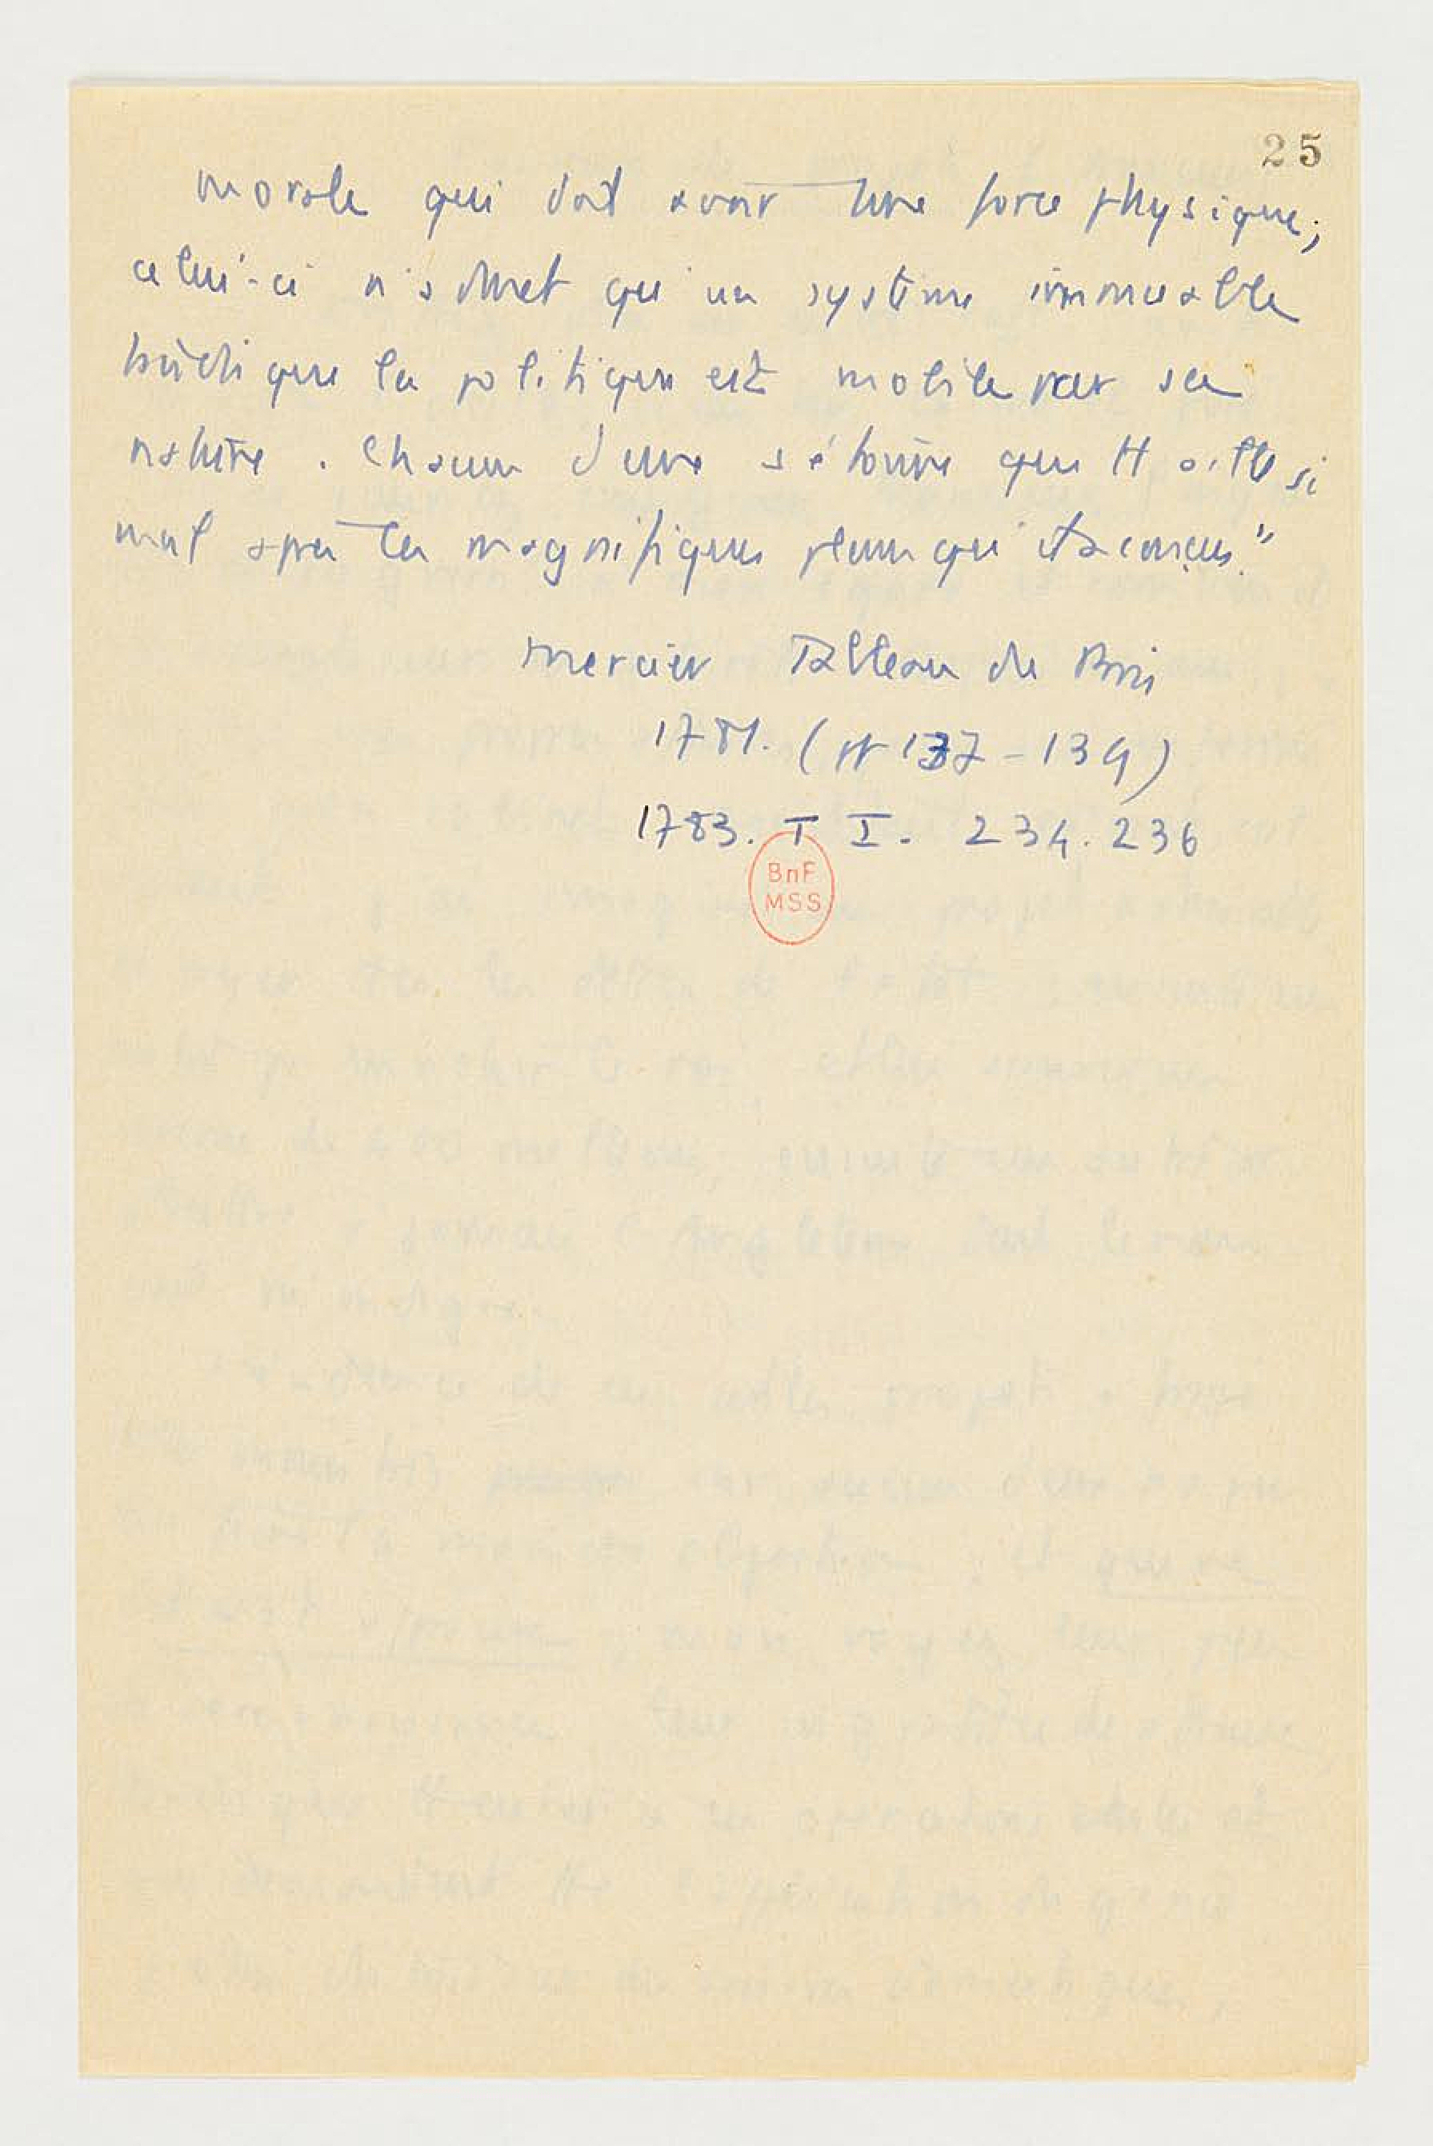 25
morale qui doit avoir une force physique ;
celui-ci n'admet qu'un système immuable
tandis que la politique est mobile par sa
nature . Chacun d'eux s'étonne que tt aille si
mal après les magnifiques plans qu'il a conçus."
Mercier Tableau de Paris
1781. ( 137 - 139)
1783. T I. 234. 236
BnF
MSS